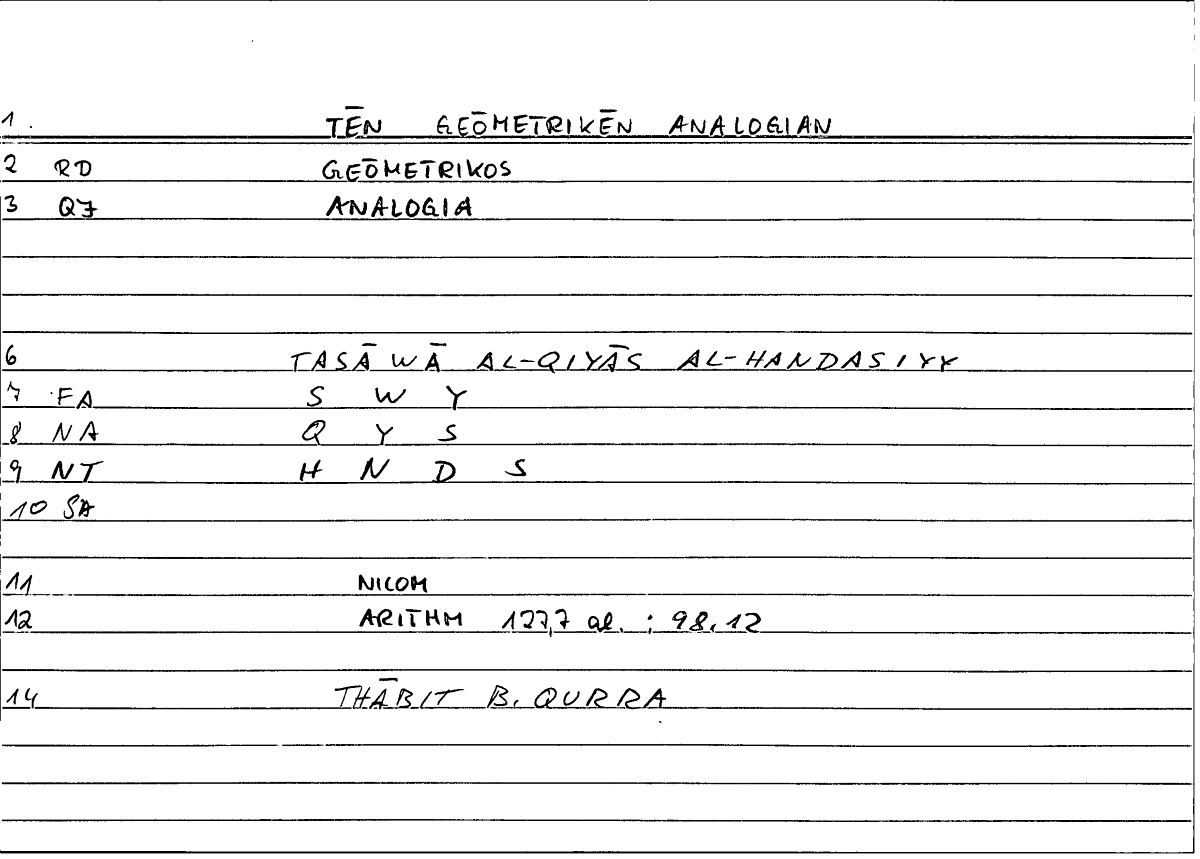 1. TĒN GEŌMETRIKĒN ANALOGIAN
2 RD GEŌMETRIKOS
3 QJ ANALOGIA
6 TASĀWĀ AL-QIYĀS AL-HANDASIYY
7 FA S W Y
8 NA Q Y S
9 NT H N D S
10 SA
11 NICOM
12 ARITHM 127,7 al. ; 98.12
14 THĀBIT B. QURRA